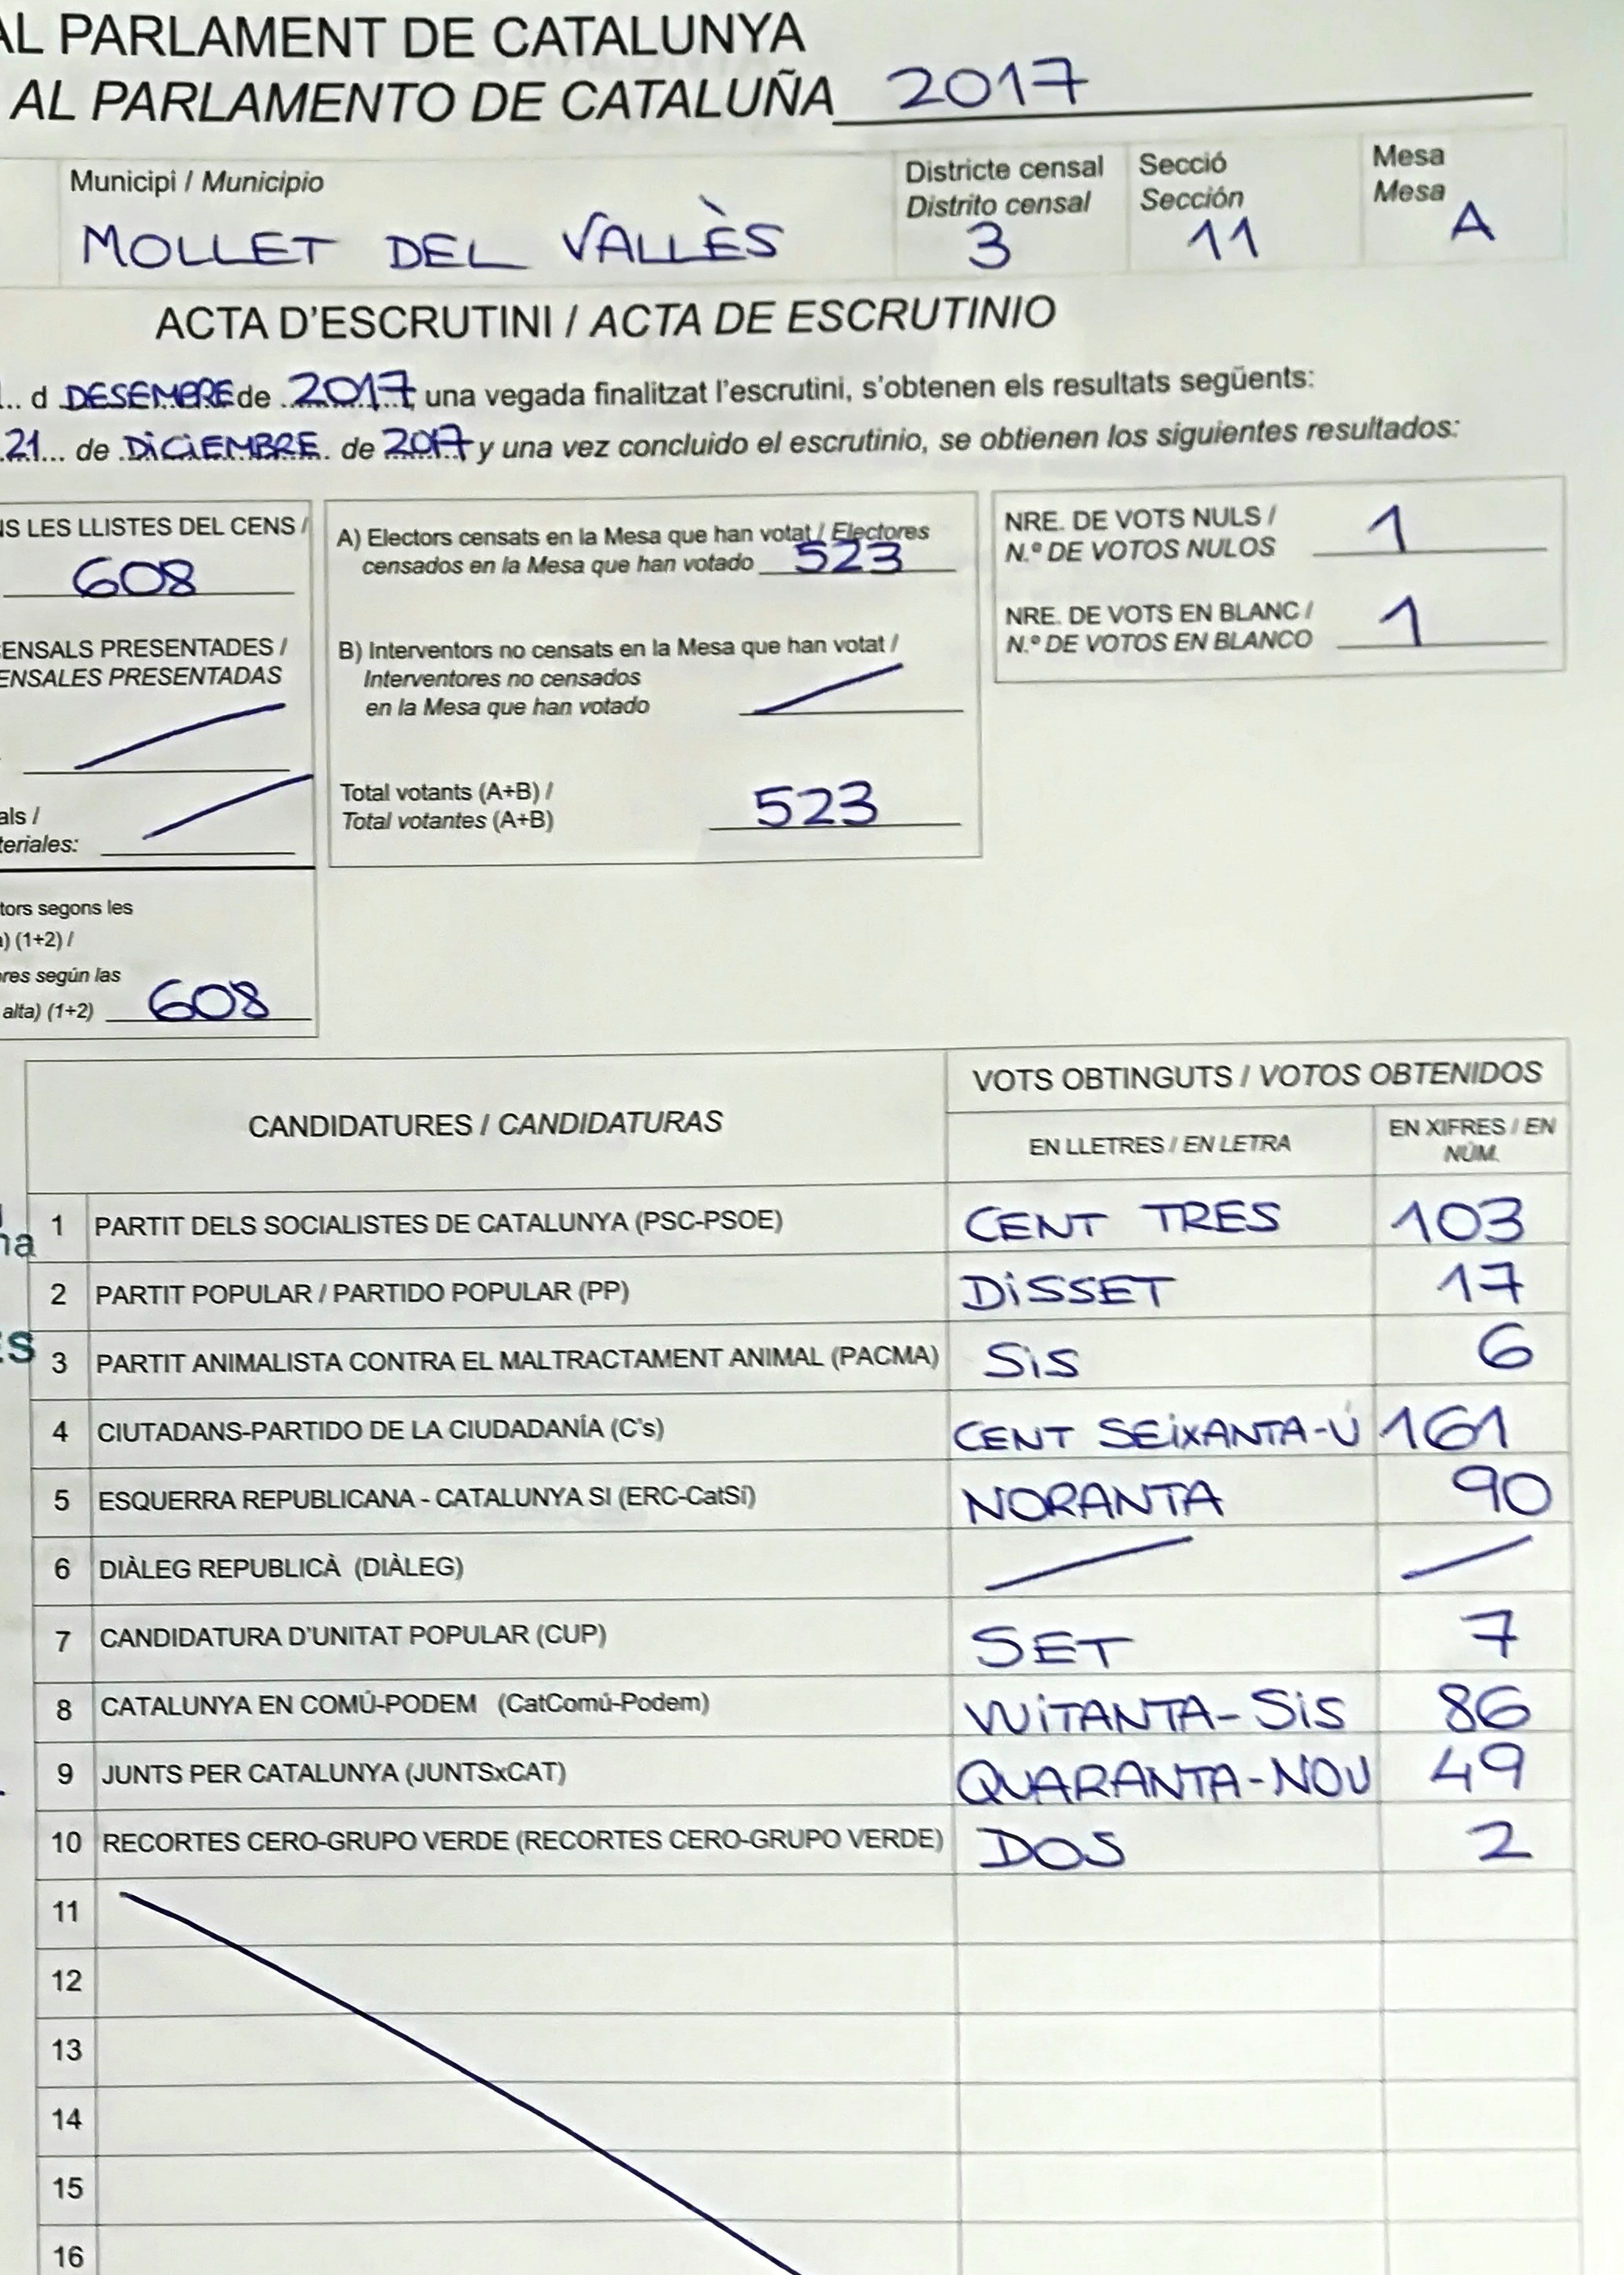 AL PARLAMENT DE CATALUNYA
AL PARLAMENTO DE CATALUÑA 2017
Municipi / Municipio
MOLLET DEL VALLÈS
Districte censal
Distrito censal
3
Secció
Sección
11
Mesa
Mesa
A
ACTA D'ESCRUTINI / ACTA DE ESCRUTINIO
d DESEMBRE de 2017, una vegada finalitzat l'escrutini, s'obtenen els resultats següents:
21 de DICIEMBRE de 2017 y una vez concluido el escrutinio, se obtienen los siguientes resultados:
LES LLISTES DEL CENS /
608
ENSALS PRESENTADES /
ENSALES PRESENTADAS
als /
teriales:
tors segons les
) (1+2) /
res según las
alta) (1+2) 608
A) Electors censats en la Mesa que han votat / Electores
censados en la Mesa que han votado 523
B) Interventors no censats en la Mesa que han votat /
Interventores no censados
en la Mesa que han votado
Total votants (A+B) /
Total votantes (A+B) 523
NRE. DE VOTS NULS /
N.º DE VOTOS NULOS 1
NRE. DE VOTS EN BLANC /
N.º DE VOTOS EN BLANCO 1
CANDIDATURES / CANDIDATURAS
VOTS OBTINGUTS / VOTOS OBTENIDOS
EN LLETRES / EN LETRA
EN XIFRES / EN
NÚM.
1 PARTIT DELS SOCIALISTES DE CATALUNYA (PSC-PSOE) CENT TRES 103
2 PARTIT POPULAR / PARTIDO POPULAR (PP) DISSET 17
3 PARTIT ANIMALISTA CONTRA EL MALTRACTAMENT ANIMAL (PACMA) SIS 6
4 CIUTADANS-PARTIDO DE LA CIUDADANÍA (C's) CENT SEIXANTA-Ú 161
5 ESQUERRA REPUBLICANA - CATALUNYA SI (ERC-CatSí) NORANTA 90
6 DIÀLEG REPUBLICÀ (DIÀLEG)
7 CANDIDATURA D'UNITAT POPULAR (CUP) SET 7
8 CATALUNYA EN COMÚ-PODEM (CatComú-Podem) VUITANTA-SIS 86
9 JUNTS PER CATALUNYA (JUNTSxCAT) QUARANTA-NOU 49
10 RECORTES CERO-GRUPO VERDE (RECORTES CERO-GRUPO VERDE) DOS 2
11
12
13
14
15
16